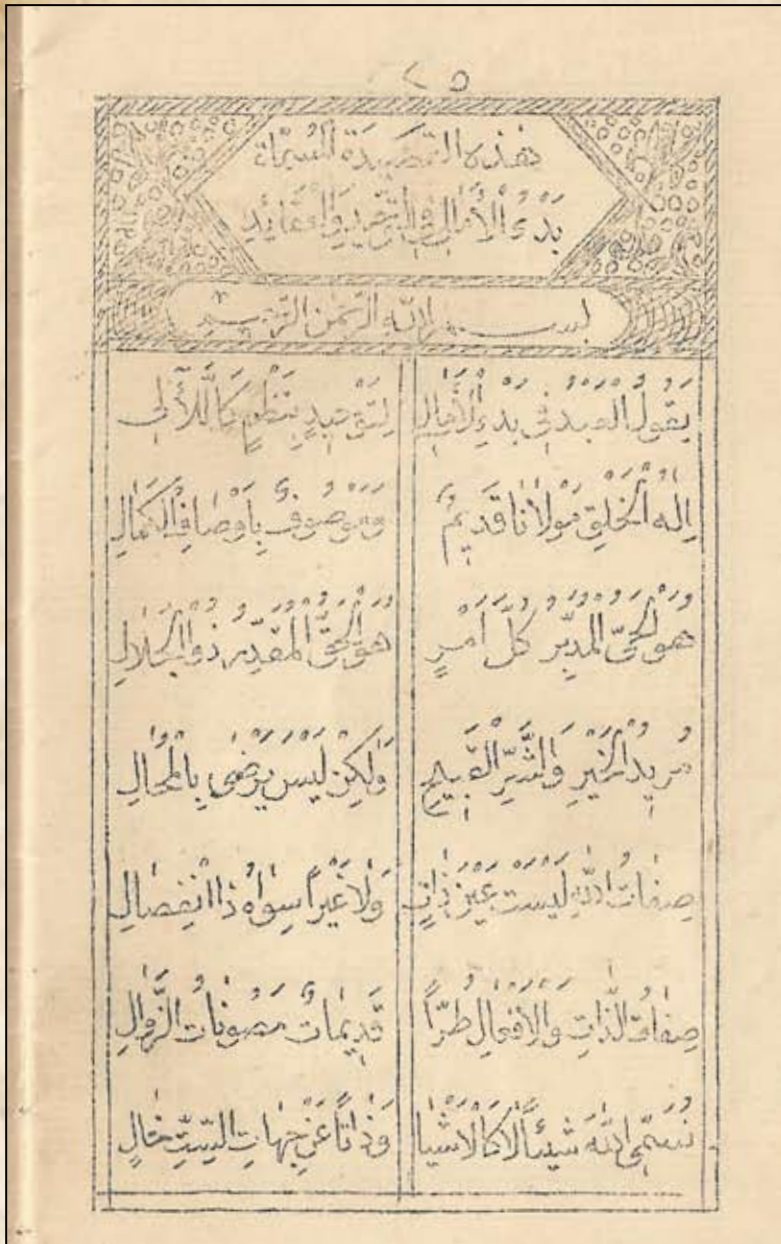 ٢٥
هٰذِهِ القَصِيدَةُ المُسَمَّاةُ
بَدْءُ الْأَمَالِي فِي التَّوْحِيدِ وَالْعَقَائِدِ
بسم الله الرحمن الرحيم
يَقُولُ الْعَبْدُ فِي بَدْءِ الْأَمَالِي لِتَوْحِيدٍ بِنَظْمٍ كَاللَّآلِي
اِلٰهُ الْخَلْقِ مَوْلَانَا قَدِيمٌ وَمَوْصُوفٌ بِاَوْصَافِ الْكَمَالِ
هُوَ الْحَيُّ الْمُدَبِّرُ كُلَّ اَمْرٍ هُوَ الْحَقُّ الْمُقَدِّرُ ذُو الْجَلَالِ
مُرِيدُ الْخَيْرِ وَالشَّرِّ الْقَبِيحِ وَلٰكِنْ لَيْسَ يَرْضٰى بِالْمُحَالِ
صِفَاتُ اللّٰهِ لَيْسَتْ عَيْنَ ذَاتٍ وَلَا غَيْرًا سِوَاهُ ذَا انْفِصَالِ
صِفَاتُ الذَّاتِ وَالْاَفْعَالِ طُرًّا قَدِيمَاتٌ مَصُونَاتُ الزَّوَالِ
نُسَمِّي اللّٰهَ شَيْئًا لَا كَالْاَشْيَا وَذَاتًا عَنْ جِهَاتِ السِّتِّ خَالٍ